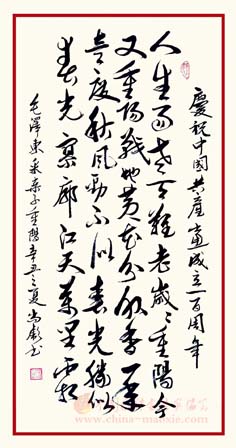 慶祝中国共產黨成立一百周年
人生易老天難老歲〻重陽今
又重陽戰地黃花分外香一年
一度秋風勁不似春光勝似
春光寥廓江天萬里霜
毛澤東采桑子重陽辛丑之夏